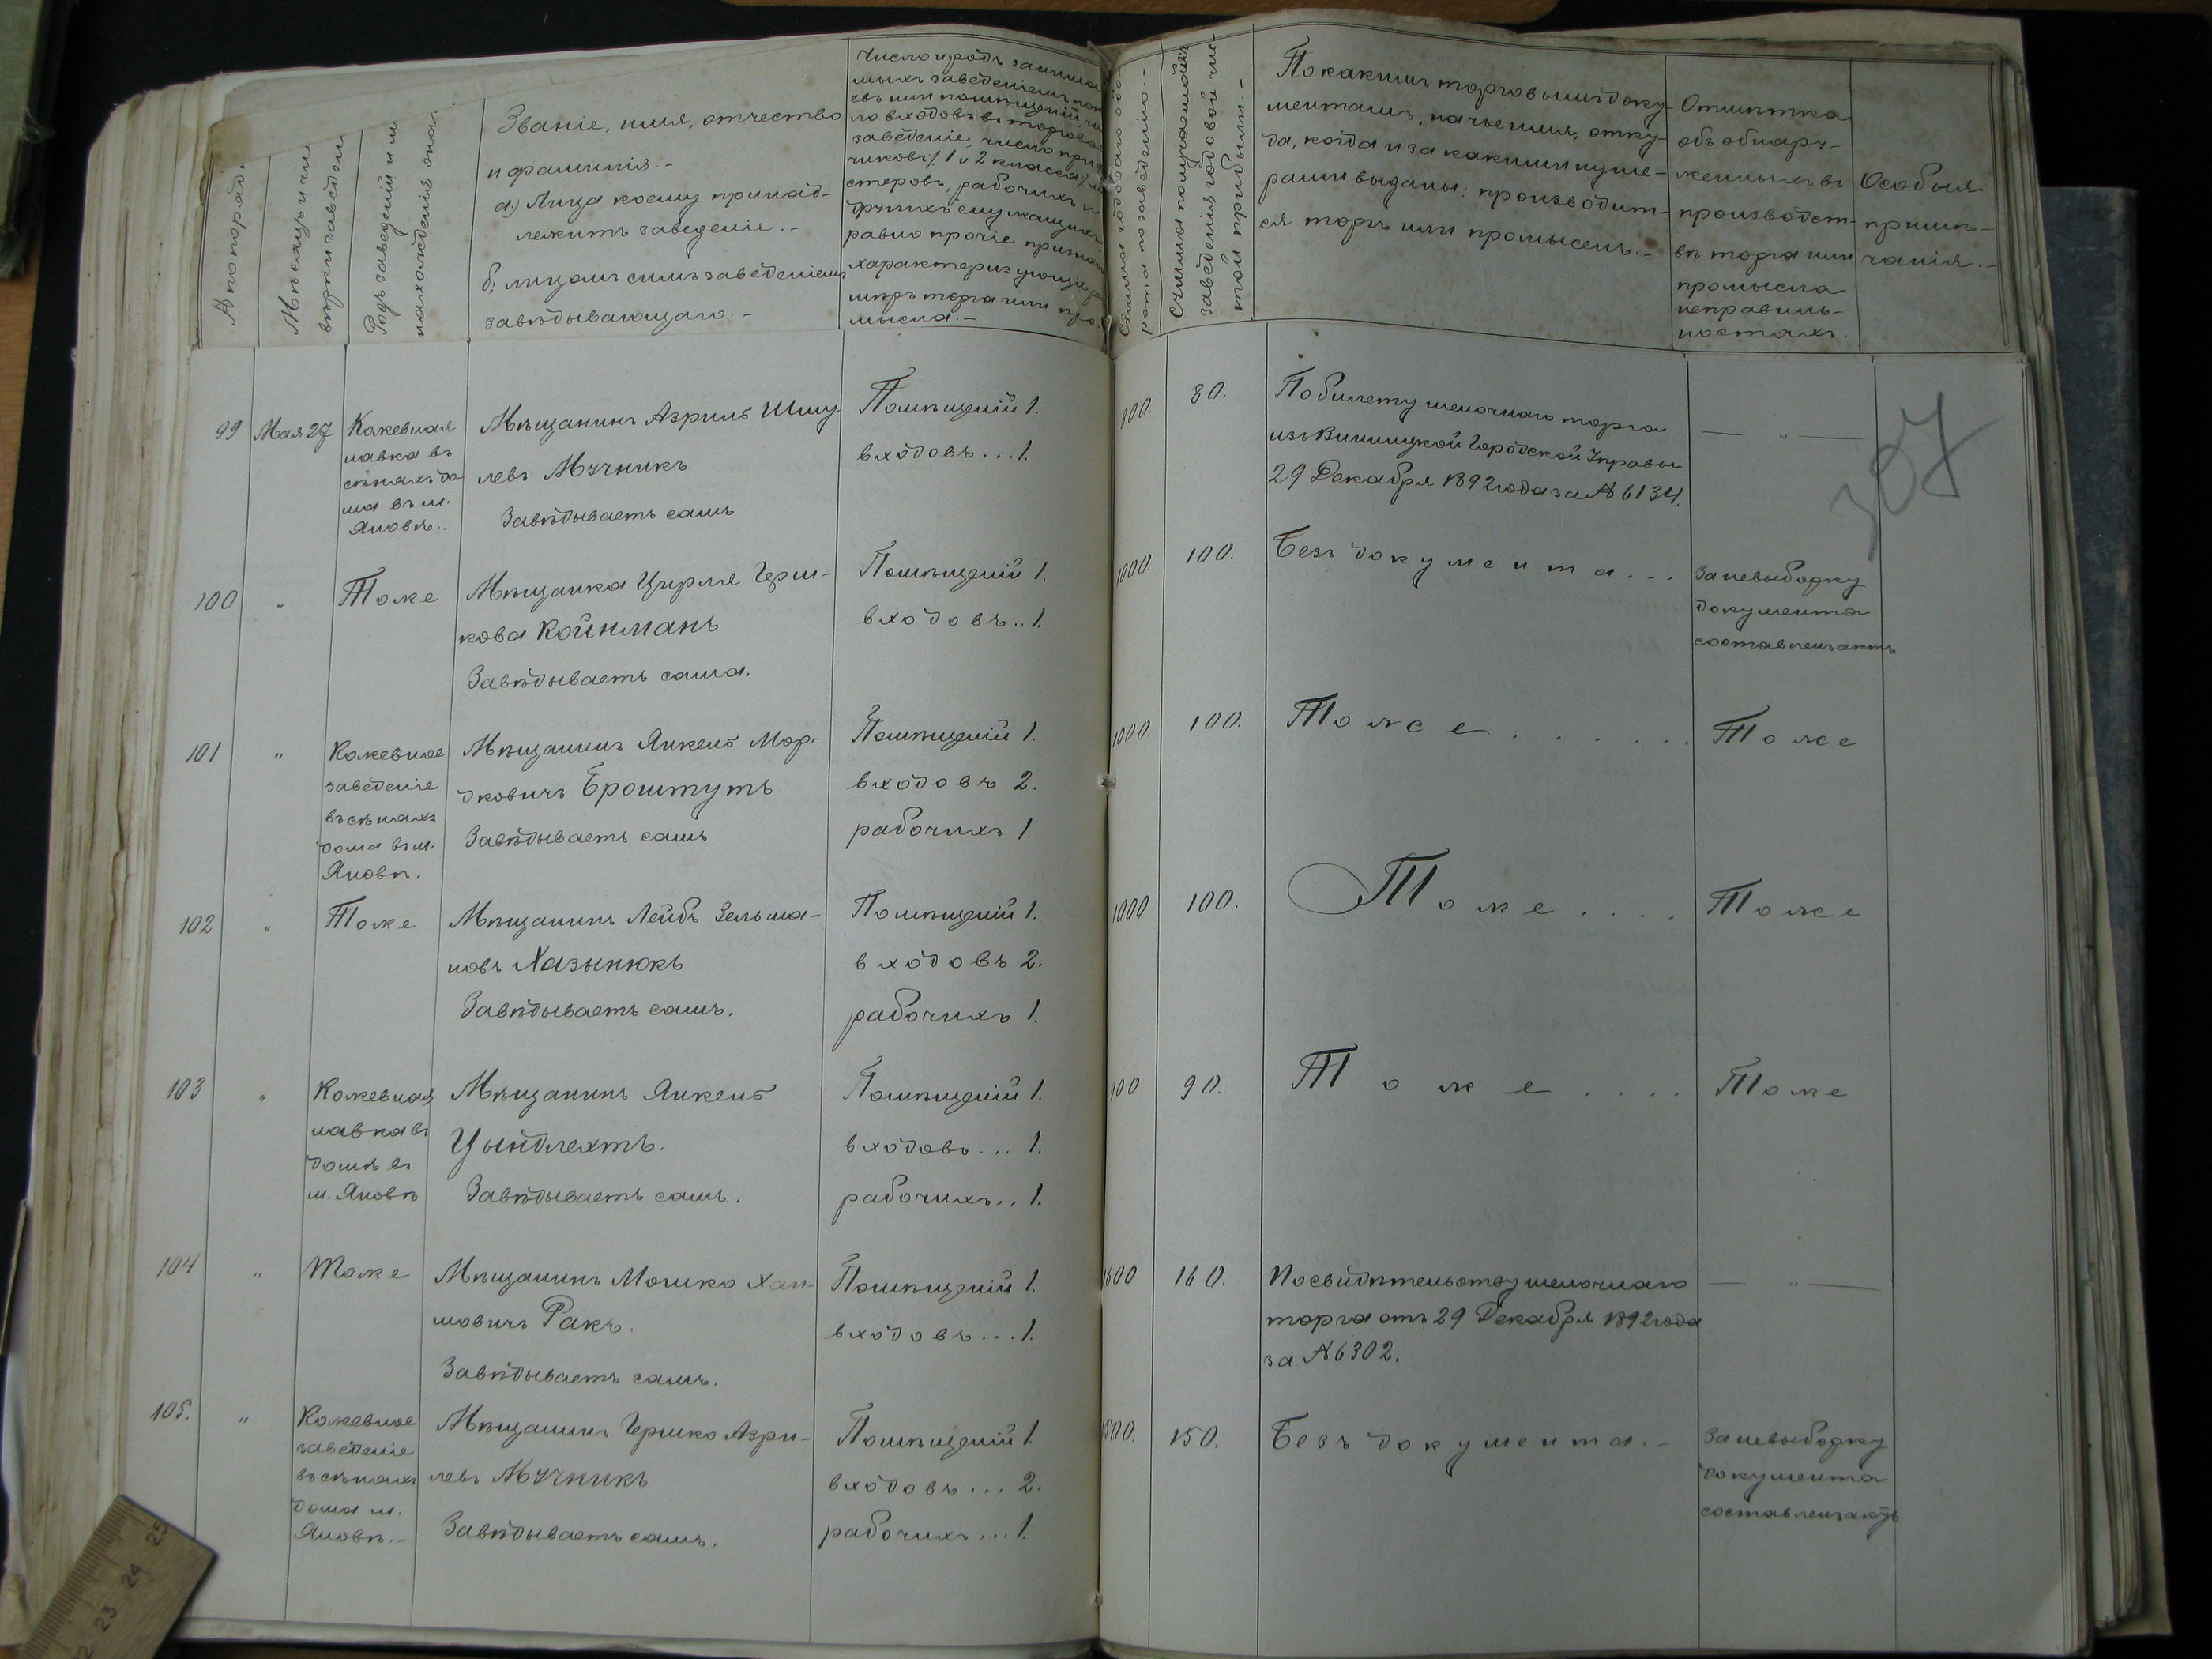 № по поряд
Мѣсяцъ и чи
вѣрки заведен
Родъ заведенiй и м
нахожденiя онаг
Званiе, имя, отчество
и фамилiя.-
а) Лица коему принад-
лежитъ заведенiе.-
б) лицомъ симъ заведенiемъ
завѣдывающаго.-
Число и родъ занима
мыхъ заведенiемъ
евъ или помѣщенiй чи
ло входовъ въ торгово
заведенiе, число при
чиковъ 1 и 2 класса), ма
стеровъ, рабочихъ и
другихъ служащихъ
равно прочiе признаки
характеризующiе
мѣръ торга или про-
мысла.-
Сумма годоваго обо-
рота по заведенiю.-
Сумма получаемой
заведенiя годовой чис-
той прибыли.-
По какимъ торговымъ доку-
ментамъ, на чье имя, отку-
да, когда и за какими нуме-
рами выданы, производит-
ся торгъ или промыселъ.-
Отмѣтка
объ обнару-
женныхъ въ
производст-
вѣ торга или
промысла
неправиль-
ностяхъ.
Особыя
примѣ-
чанiя.-
307
99 Мая 27 Кожевная
лавка въ
сѣняхъ до
ма въ м.
Яновѣ.-
Мѣщанинъ Азриль Шму-
левъ Мучникъ
Завѣдываетъ самъ
Помѣщенiй 1.
входовъ...1.
800. 80.
По билету мелочнаго торга
изъ Винницкой Городской Управы
29 Декабря 1892 года за № 6134.
— " —
100 " Тоже
Мѣщанка Цирля Герш-
кова Койнманъ
Завѣдываетъ сама.
Помѣщенiй 1.
входовъ..1.
1000. 100.
Безъ документа...
За невыборку
документа
составленъ актъ
101 " Кожевное
заведенiе
въ сѣняхъ
дома въ м.
Яновѣ.
Мѣщанинъ Янкель Мор-
дковичъ Броштутъ
Завѣдываетъ самъ
Помѣщенiй 1.
входовъ 2.
рабочихъ 1.
1000. 100.
Тоже.......
Тоже
102 " Тоже
Мѣщанинъ Лейбъ Зельма-
новъ Хазынюкъ
Завѣдываетъ самъ.
Помѣщенiй 1.
входовъ 2.
рабочихъ 1.
1000 100.
Тоже....
Тоже
103 " Кожевная
лавка въ
домѣ въ
м. Яновѣ
Мѣщанинъ Янкель
Цындлехтъ.
Завѣдываетъ самъ.
Помѣщенiй 1.
входовъ...1.
рабочихъ..1.
900 90.
Тоже....
Тоже
104 " Тоже
Мѣщанинъ Мошко Хаи-
мовичъ Ракъ.
Завѣдываетъ самъ.
Помѣщенiй 1.
входовъ...1.
1600 160.
По свидѣтельству мелочнаго
торга отъ 29 Декабря 1892 года
за № 6302.
— " —
105. " Кожевное
заведенiе
въ сѣняхъ
дома м.
Яновѣ.-
Мѣщанинъ Гершко Азри-
левъ Мучникъ
Завѣдываетъ самъ.
Помѣщенiй 1.
входовъ...2.
рабочихъ...1.
1500. 150.
Безъ документа.-
За невыборку
документа
составленъ актъ
23 24 25